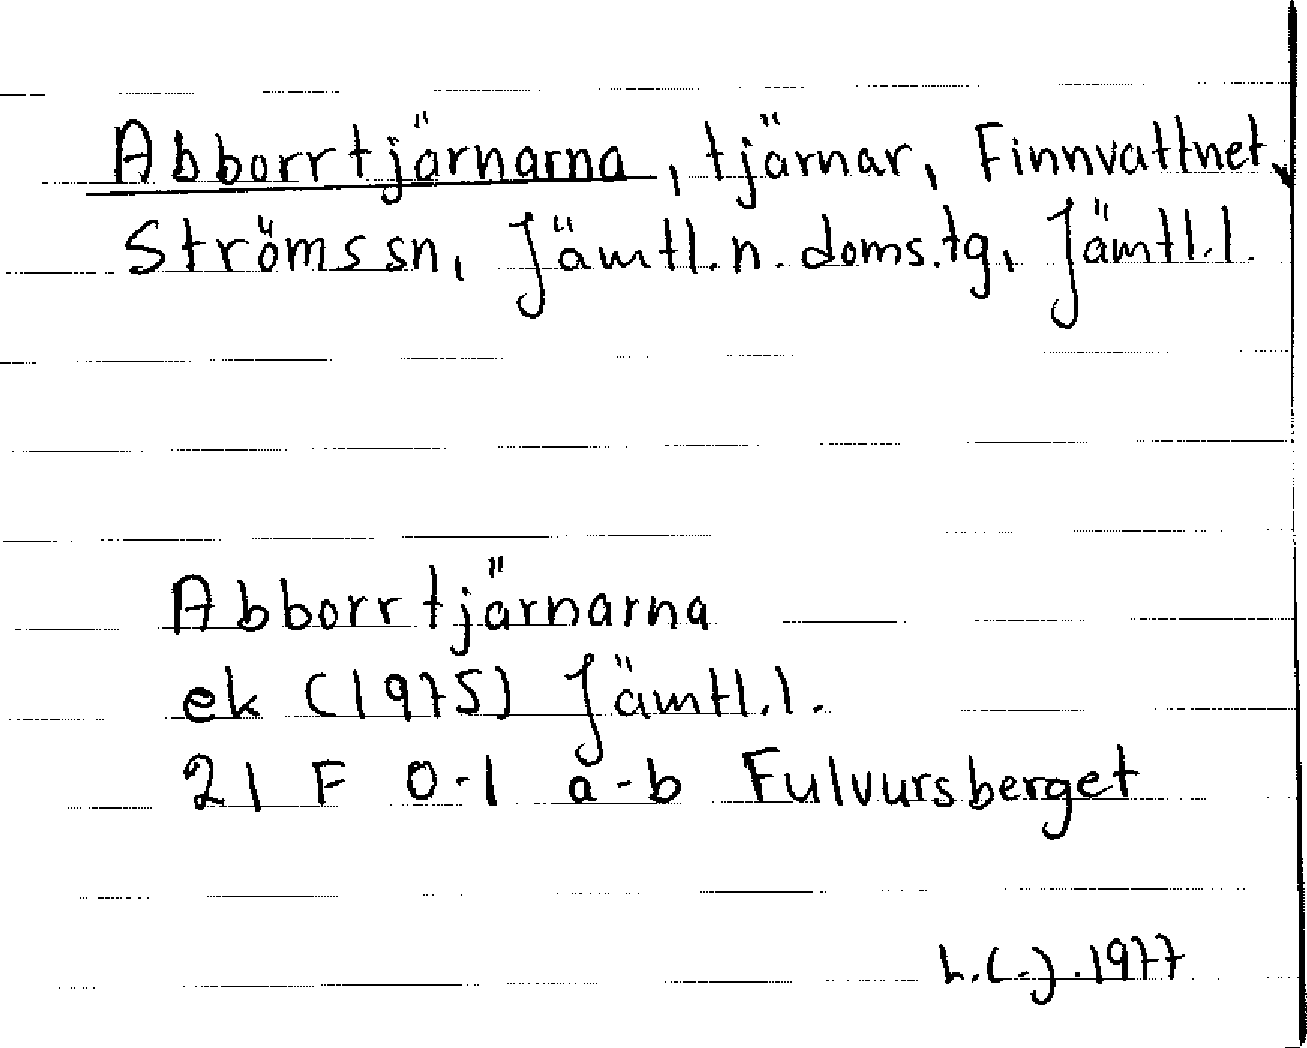 Abborrtjärnarna, tjärnar, Finnvattnet,
Ströms sn, Jämtl. n. doms.tg, Jämtl. l.
Abborrtjärnarna
ek (1975) Jämtl. l.
21 F 0-1 a-b Fulvursberget
L.C.J. 1977